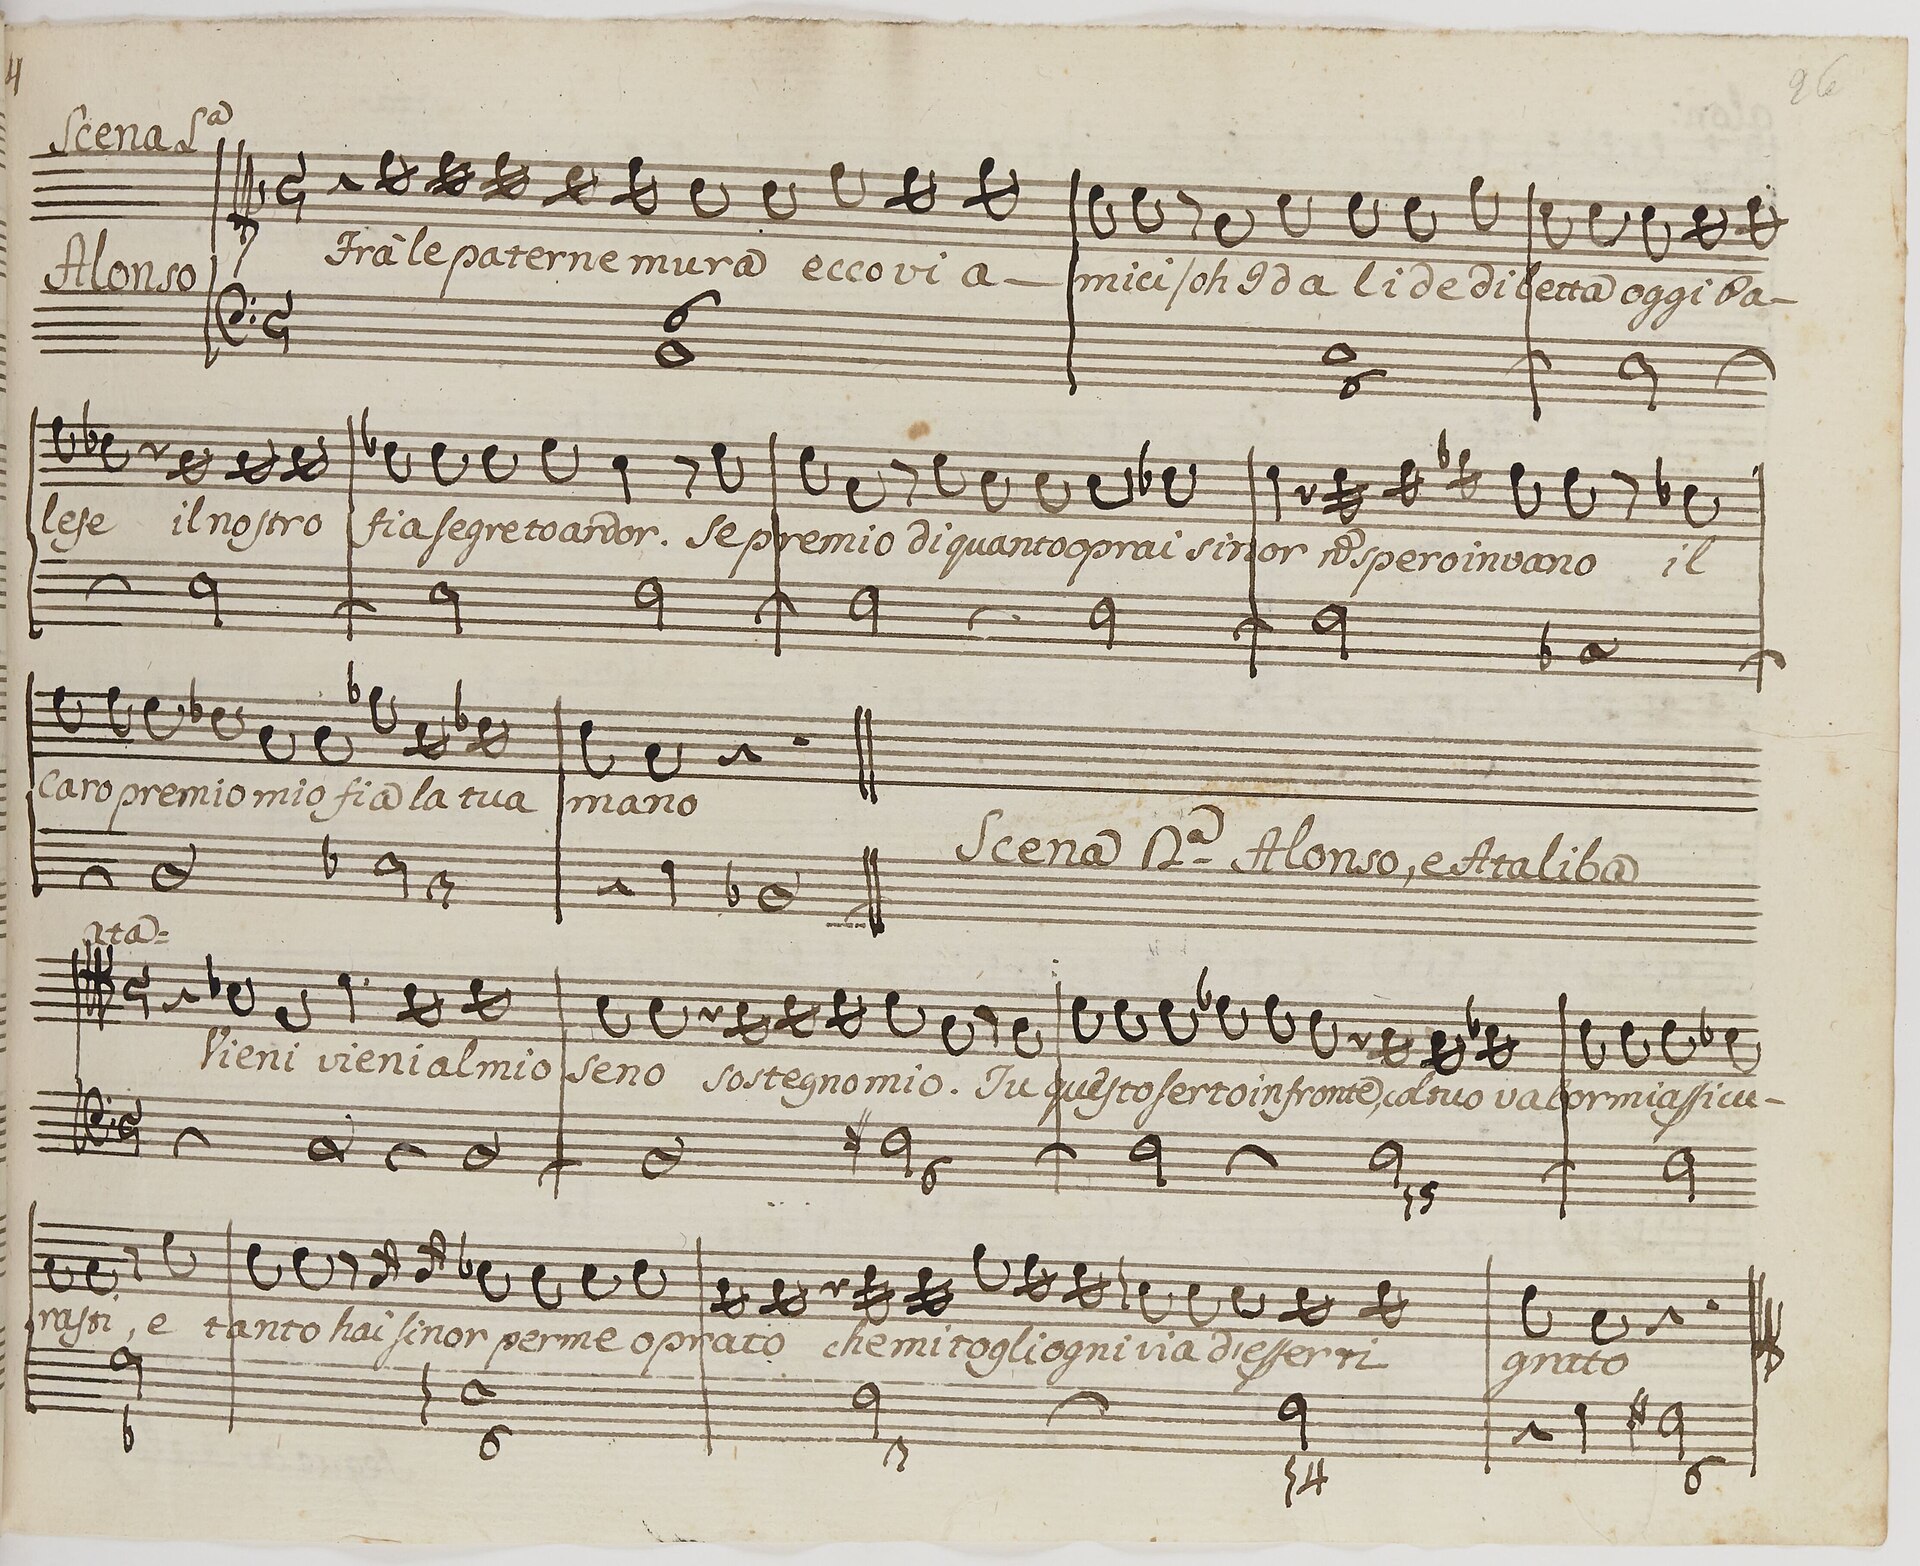 26
Scena Sª
Alonso
Frà le paterne mura eccovi a— mici / oh Ida li de diletta oggi pa—
lese il nostro fia segreto ardor. Se premio di quanto oprai sinor nõ spero invano il
caro premio mio fia la tua mano
Scena Nª Alonso, e Ataliba
Ata=
Vieni vieni al mio seno sostegno mio. Tu questo serto in fronte, col tuo valor mi assicu—
rasti, e tanto hai sinor per me oprato che mi togli ogni via d'esserti grato